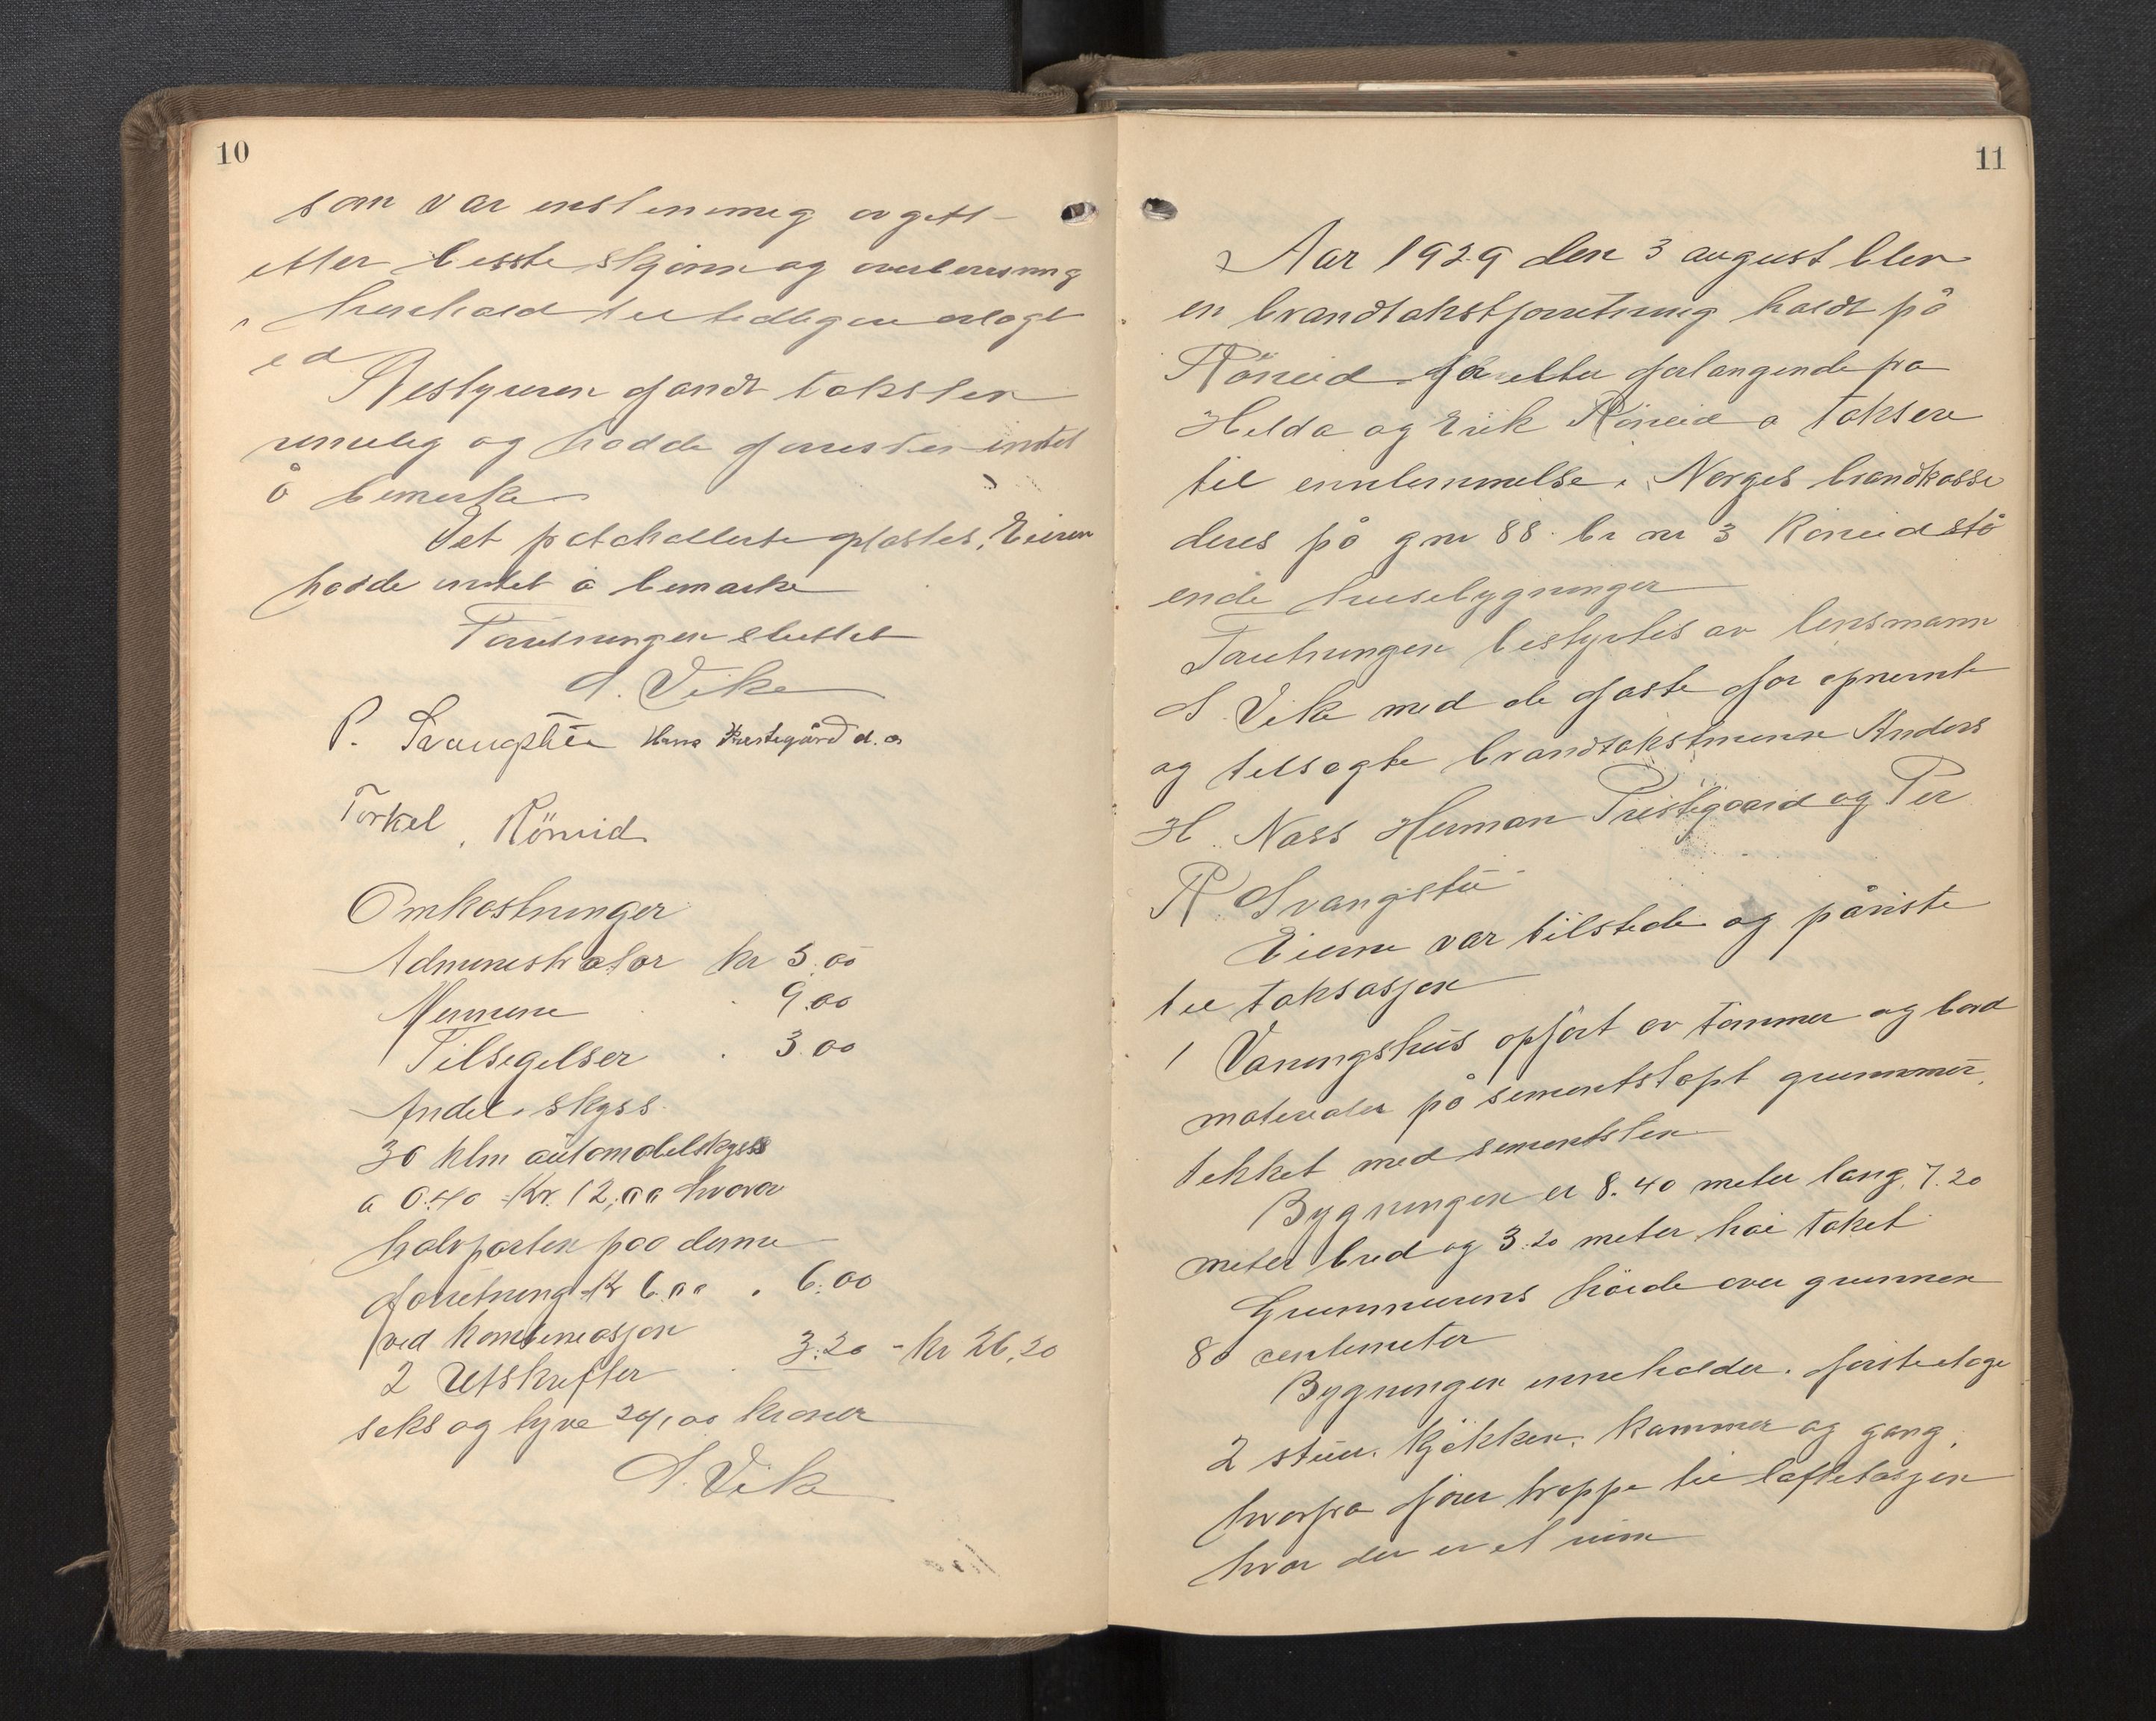 10
som var enstemmig avgitt
etter beste skjønn og overbevisning
i henhold til tidligere avlagt
ed
Bestyreren fandt taksten
rimelig og hadde forresten intet
å bemerke
Det protokollerte oplastes, Eieren
hadde intet å bemerke
Forretningen sluttet
S. Vike
P. Svangstu Herm Prestegård d. o
Torkel Röneid
Omkostninger
Administrator kr 5.00
Mennene . 9.00
Tilsigelser . 3.00
Andel i skyss
30 klm automobilskyss
a 0.40 Kr. 12,00 hvorav
halvparten paa denne
forretning kr 6.00 . 6.00
ved kombinasjon
2 Utskrifter . 3.20 - kr 26.20
seks og tyve 20/100 kroner
S. Vike
11
Aar 1929 den 3 august blev
en brandtakstforretning holdt på
Röneid for etter forlangende fra
Helda og Erik Röneid a taksere
til innlemmelse i Norges brandkasse
deres på gnr 88 br nr 3 Röneid stå
ende husebygninger
Forretningen bestyrtes av lensmann
S. Vike med de faste for opnevnte
og tilsagte brandtakstmenn Anders
H. Nass Herman Prestegaard og Per
R Svangstu
Eierne var tilstede og påviste
til taksasjon
1 Vaningshus opfört av tømmer og bord
materialer på sementstøpt grunnmur,
tekket med sementsten
Bygningen er 8.40 meter lang, 7.20
meter bred og 3.20 meter höi taket
Grunnmurens höide over grunnen
80 centimeter
Bygningen inneholder i første etage
2 stuer. Kjøkken. Kammer og gang,
hvorfra förer trappe til loftetasjen
hvor der er et rum